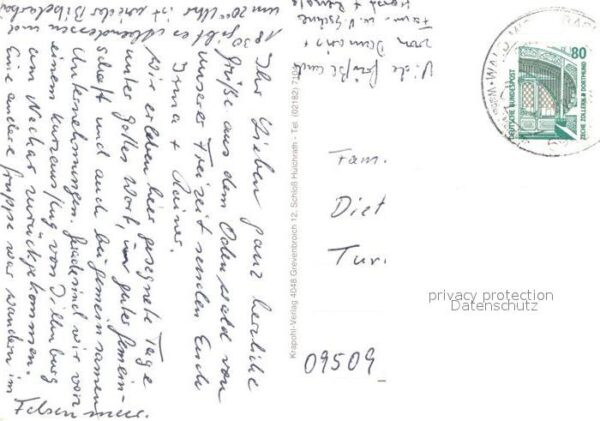 Ihr Lieben ganz herzliche
Grüße aus dem Odenwald von
unserer Freizeit senden Euch
Irma + Rainer.
Wir erleben hier gesegnete Tage
unter Gottes Wort, in guter Gemein-
schaft und auch bei gemeinsamen
Unternehmungen. Gerade sind wir von
einem Kurzausflug von Dilsburg
am Neckar zurückgekommen.
Eine andere Gruppe war wandern im
Felsenmeer.
18 30 gibt es Abendessen und
um 20 00 Uhr ist wieder Bibelarbeit
Viele Grüße auch
von
Fam.
Krapohl-Verlag 4048 Grevenbroich 12, Schloß Hülchrath - Tel. (02182)
80
DEUTSCHE BUNDESPOST
ZECHE ZOLLERN II DORTMUND
Fam.
Diet
Tur.
09509
privacy protection
Datenschutz